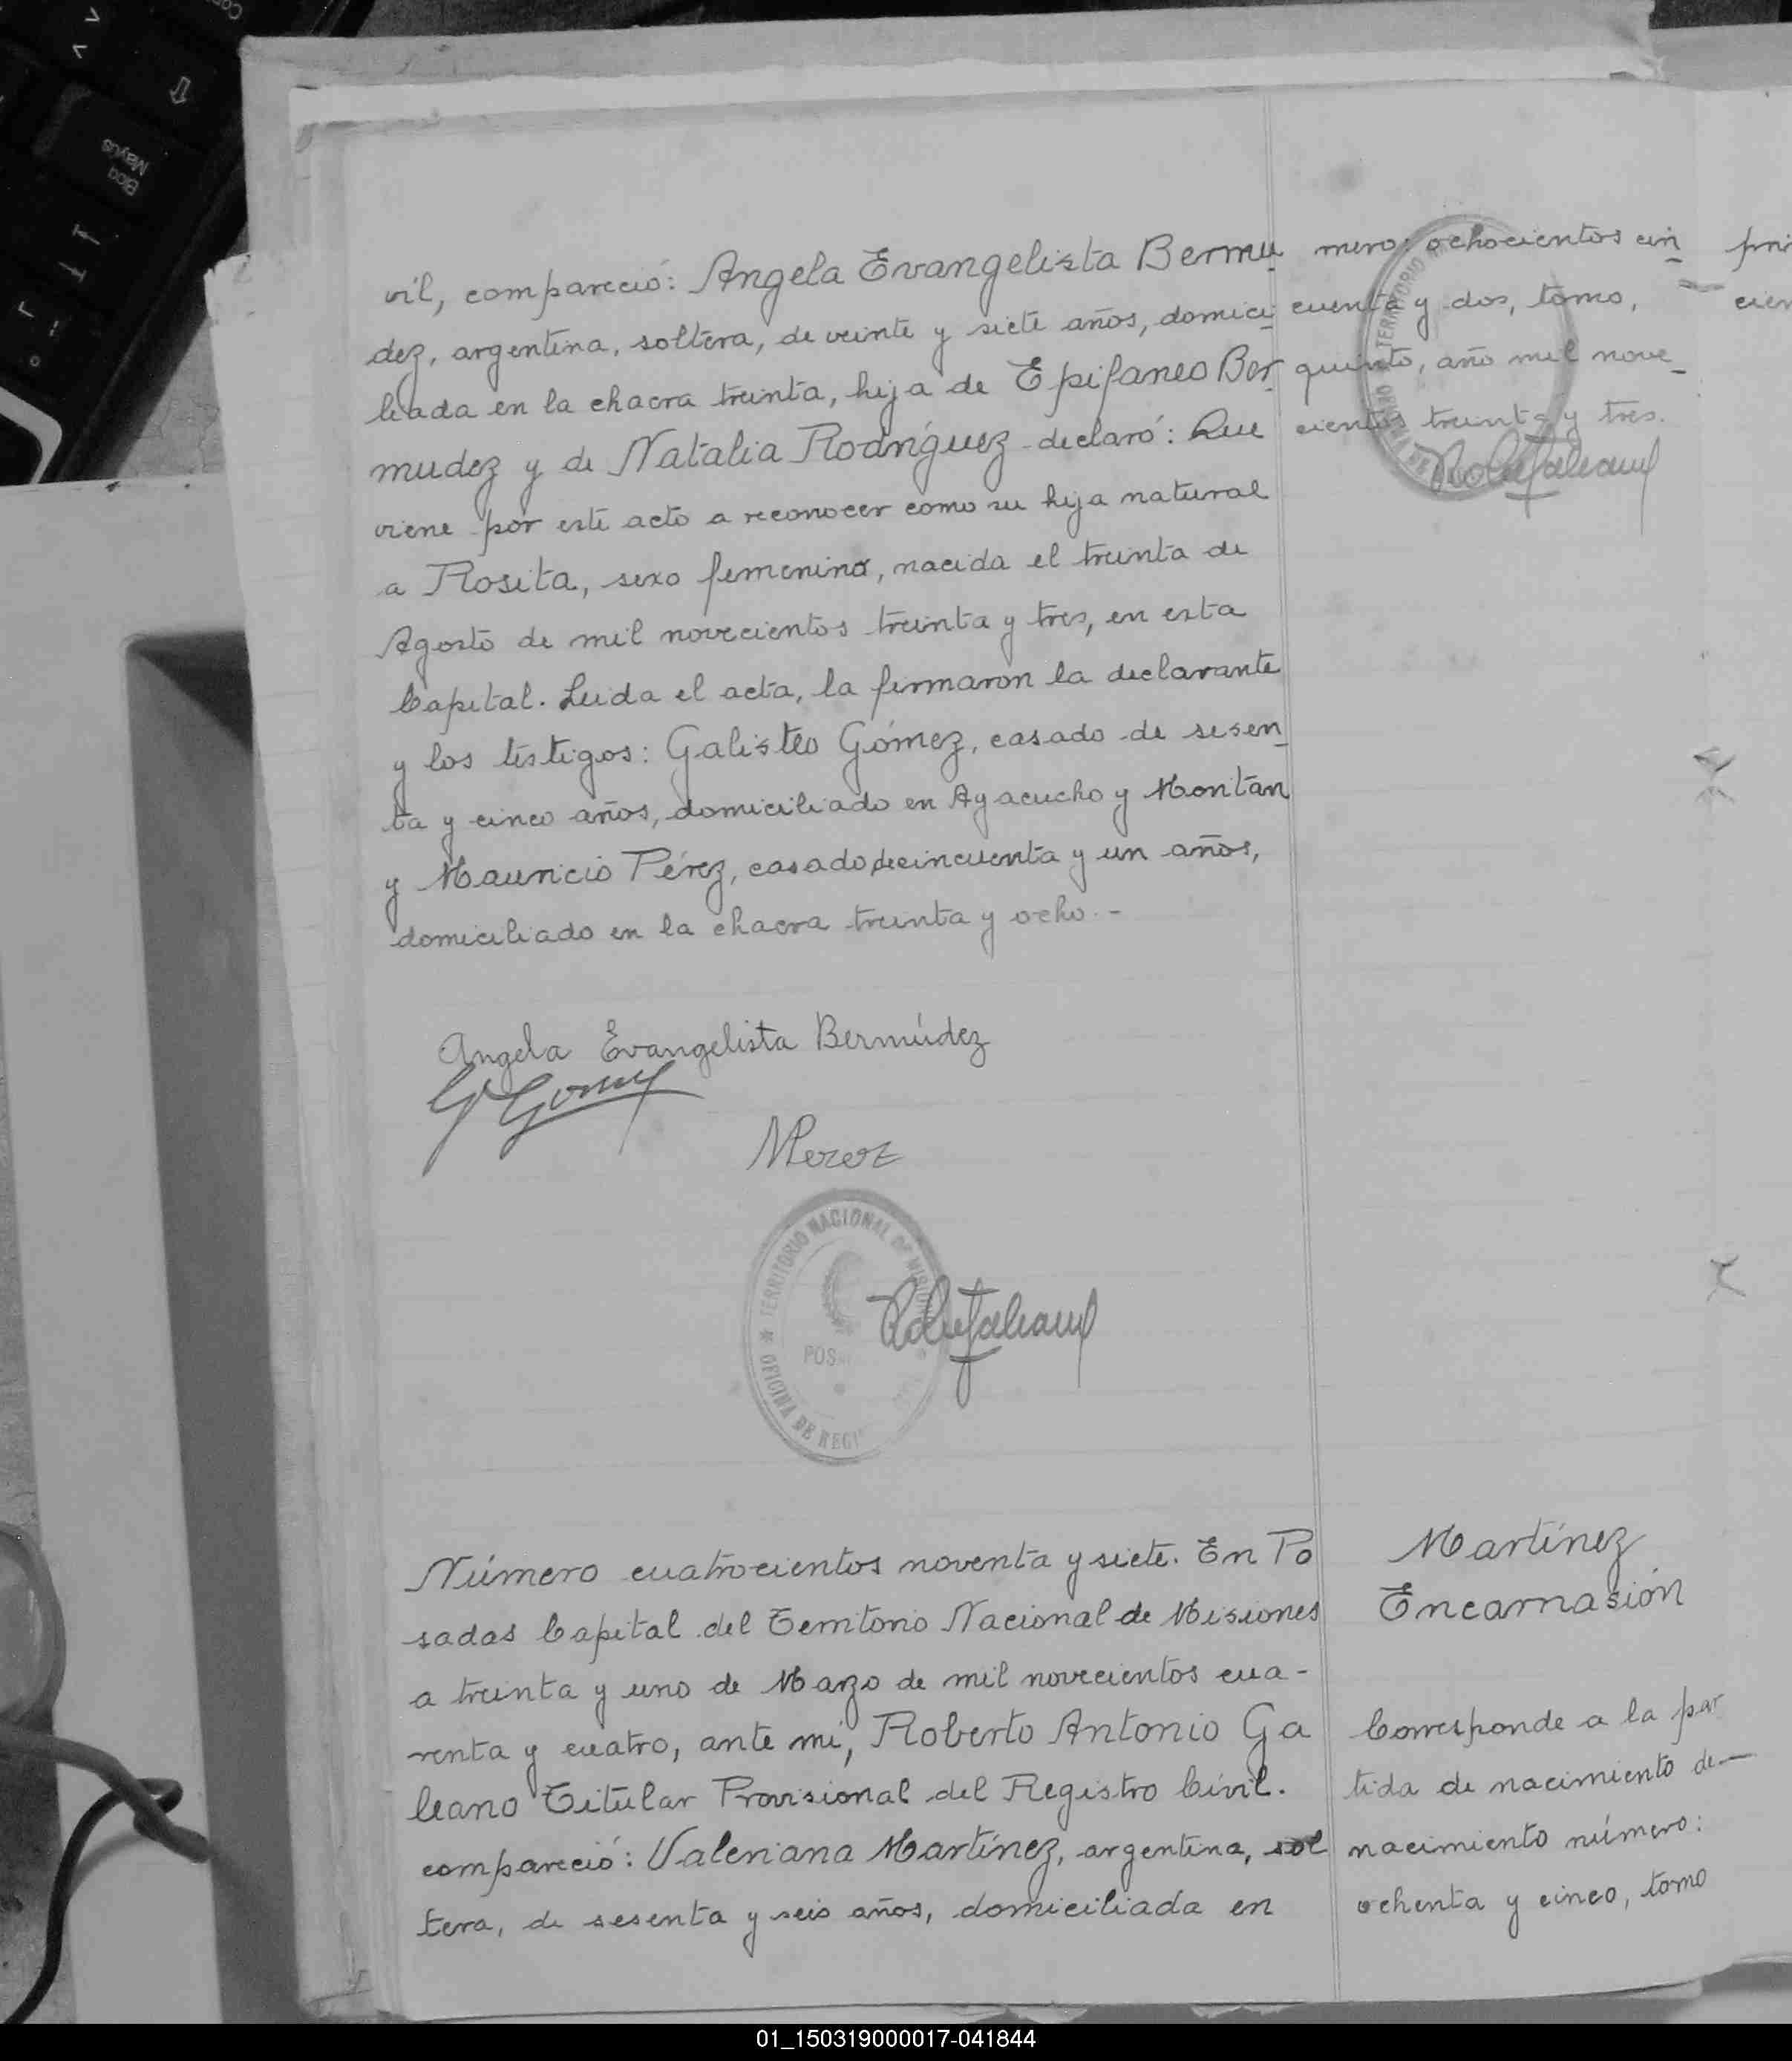 vil, compareció: Angela Evangelista Bermu
dez, argentina, soltera, de veinte y siete años, domici
liada en la chacra treinta, hija de Epifaneo Ber
mudez y de Natalia Rodríguez declaró: Que
viene por este acto a reconocer como su hija natural
a Rosita, sexo femenino, nacida el treinta de
Agosto de mil novecientos treinta y tres, en esta
Capital. Leida el acta, la firmaron la declarante
y los testigos: Galisteo Gómez, casado de sesen
ta y cinco años, domiciliado en Ayacucho y Montan
y Mauricio Pérez, casado de cincuenta y un años,
domiciliado en la chacra treinta y ocho.-
mero: ochocientos cin
cuenta y dos, tomo,
quinto, año mil nove
cientos treinta y tres.
Angela Evangelista Bermúdez
G Gomez
MPerez
TERRITORIO NACIONAL DE MISIONES
OFICINA DE REGI
POS
Número cuatrocientos noventa y siete. En Po
sadas Capital del Territorio Nacional de Misiones
a treinta y uno de Marzo de mil novecientos cua-
renta y cuatro, ante mi, Roberto Antonio Ga
leano Titular Provisional del Registro Civil.
compareció: Valeriana Martínez, argentina, sol
tera, de sesenta y seis años, domiciliada en
Martínez
Encarnasión
Corresponde a la par
tida de nacimiento de
nacimiento número:
ochenta y cinco, tomo
01_150319000017-041844